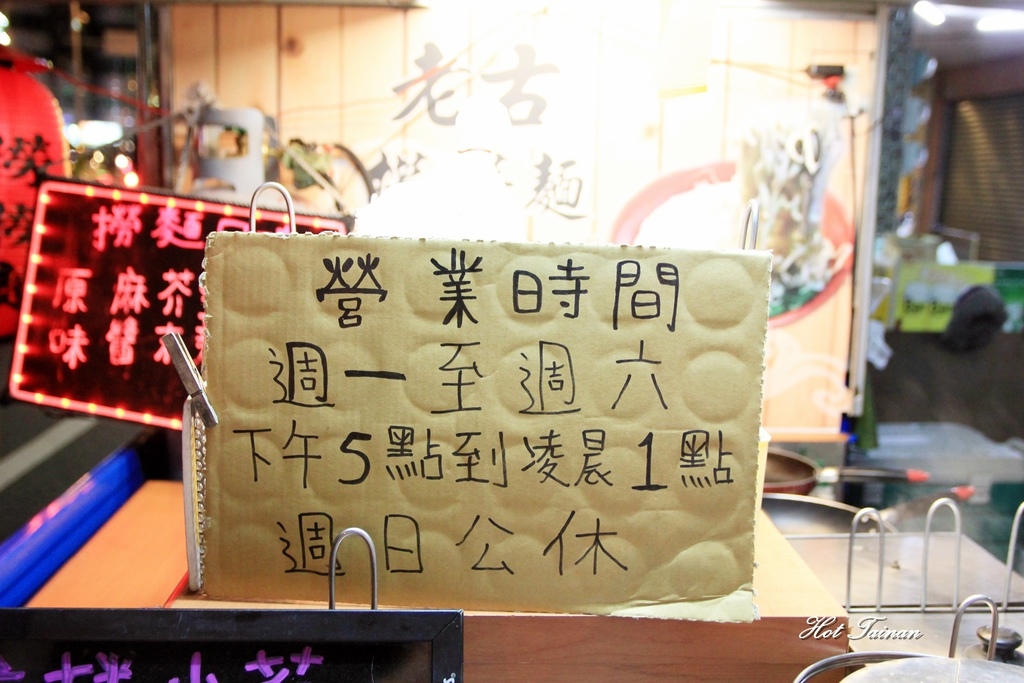 老古
撈 麵
撈麵
原 麻 芥
味 醬
營業時間
週一至週六
下午5點到凌晨1點
週日公休
小菜
Hot Tainan